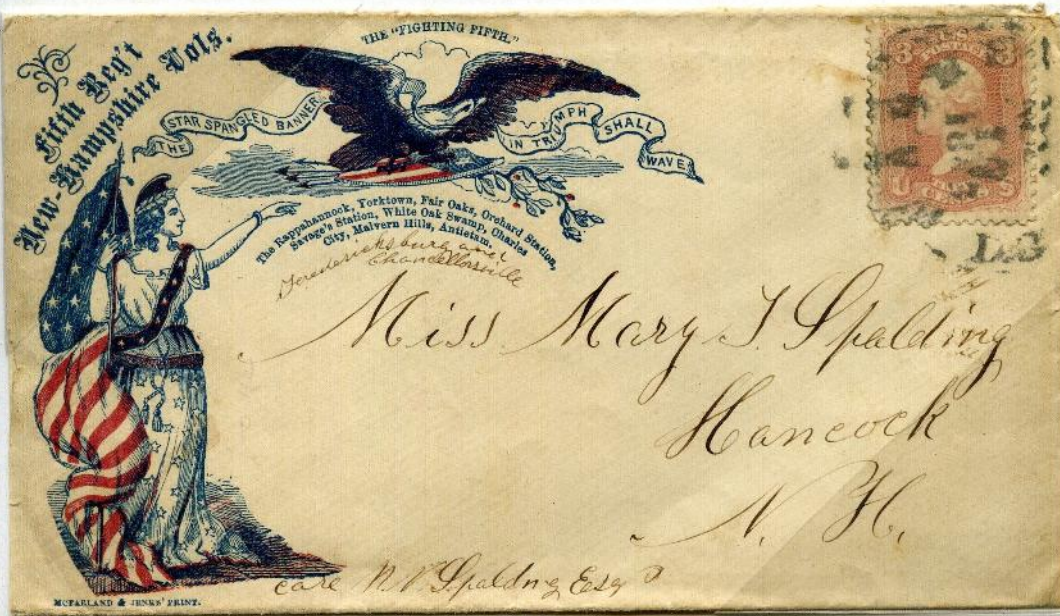 Fifth Reg't
New-Hampshire Vols.
THE "FIGHTING FIFTH."
THE STAR SPANGLED BANNER IN TRIUMPH SHALL WAVE
The Rappahannock, Yorktown, Fair Oaks, Orchard Station,
Savage's Station, White Oak Swamp, Charles
City, Malvern Hills, Antietam,
Chancellorsville
Miss Mary J. Spalding
Hancock
N. H.
care Spalding Esq
MCFARLAND & JENKS' PRINT.
3 3
U S